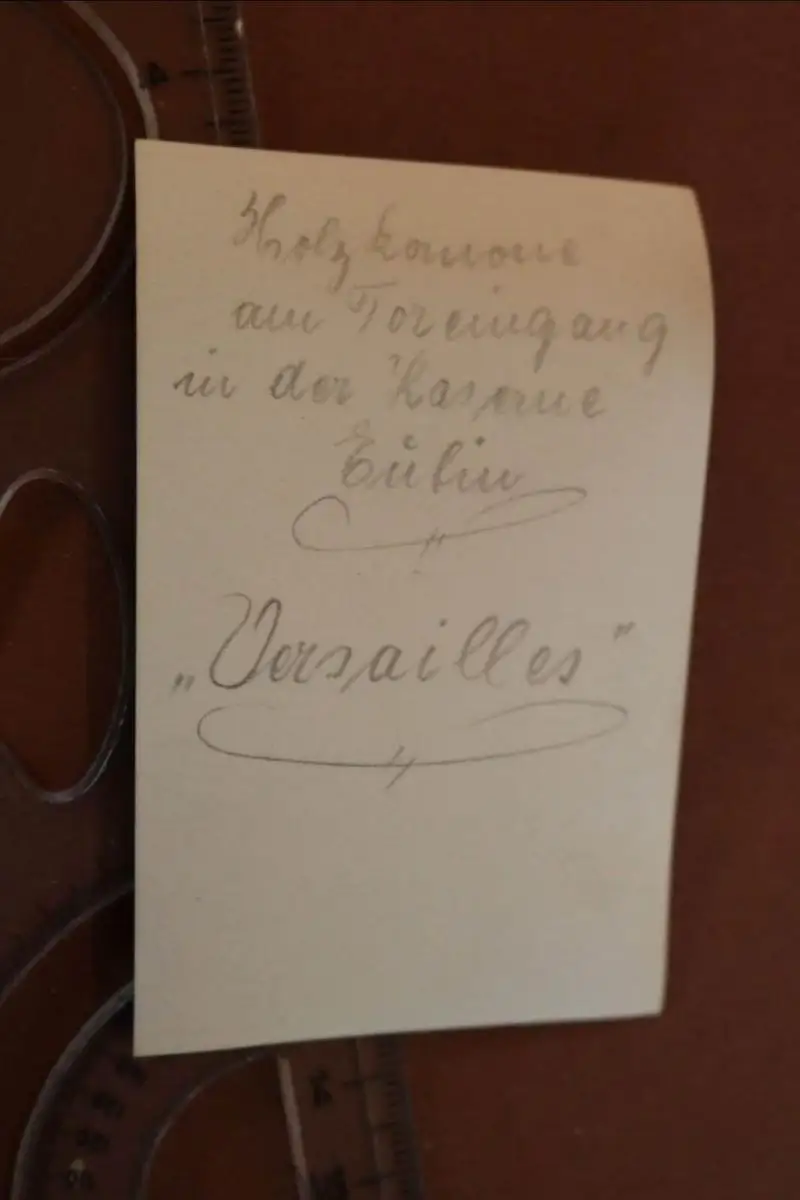 Holzkanone
am Toreingang
in der Kaserne
Eutin
„Versailles"
4